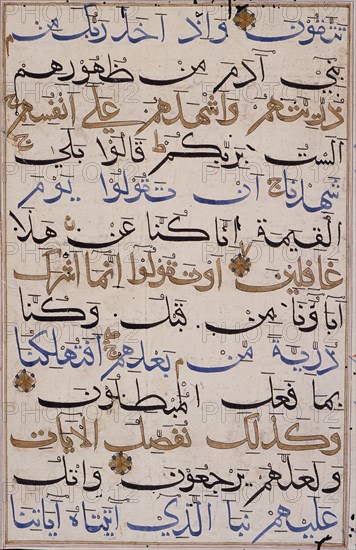 تتقون واذ اخذ ربك من
بني آدم من ظهورهم
ذريتهم واشهدهم علي انفسهم
الست بربكم قالوا بلي
شهدنا ان تقولوا يوم
القيمة انا كنا عن هذا
غافلين او تقولوا انما اشرك
اباؤنا من قبل وكنا
ذرية من بعدهم افتهلكنا
بما فعل المبطلون
وكذلك نفصل الايات
ولعلهم يرجعون واتل
عليهم نبا الذي اتيناه اياتنا